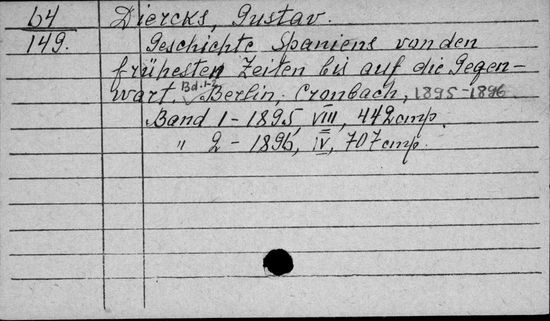 64 Diercks, Gustav.
149. Geschichte Spaniens von den
frühesten Zeiten bis auf die Gegen-
wart. Bd.1- Berlin, Cronbach, 1895-1896
Band 1 - 1895, VIII, 442 стр.
" 2 - 1896, IV, 707 стр.